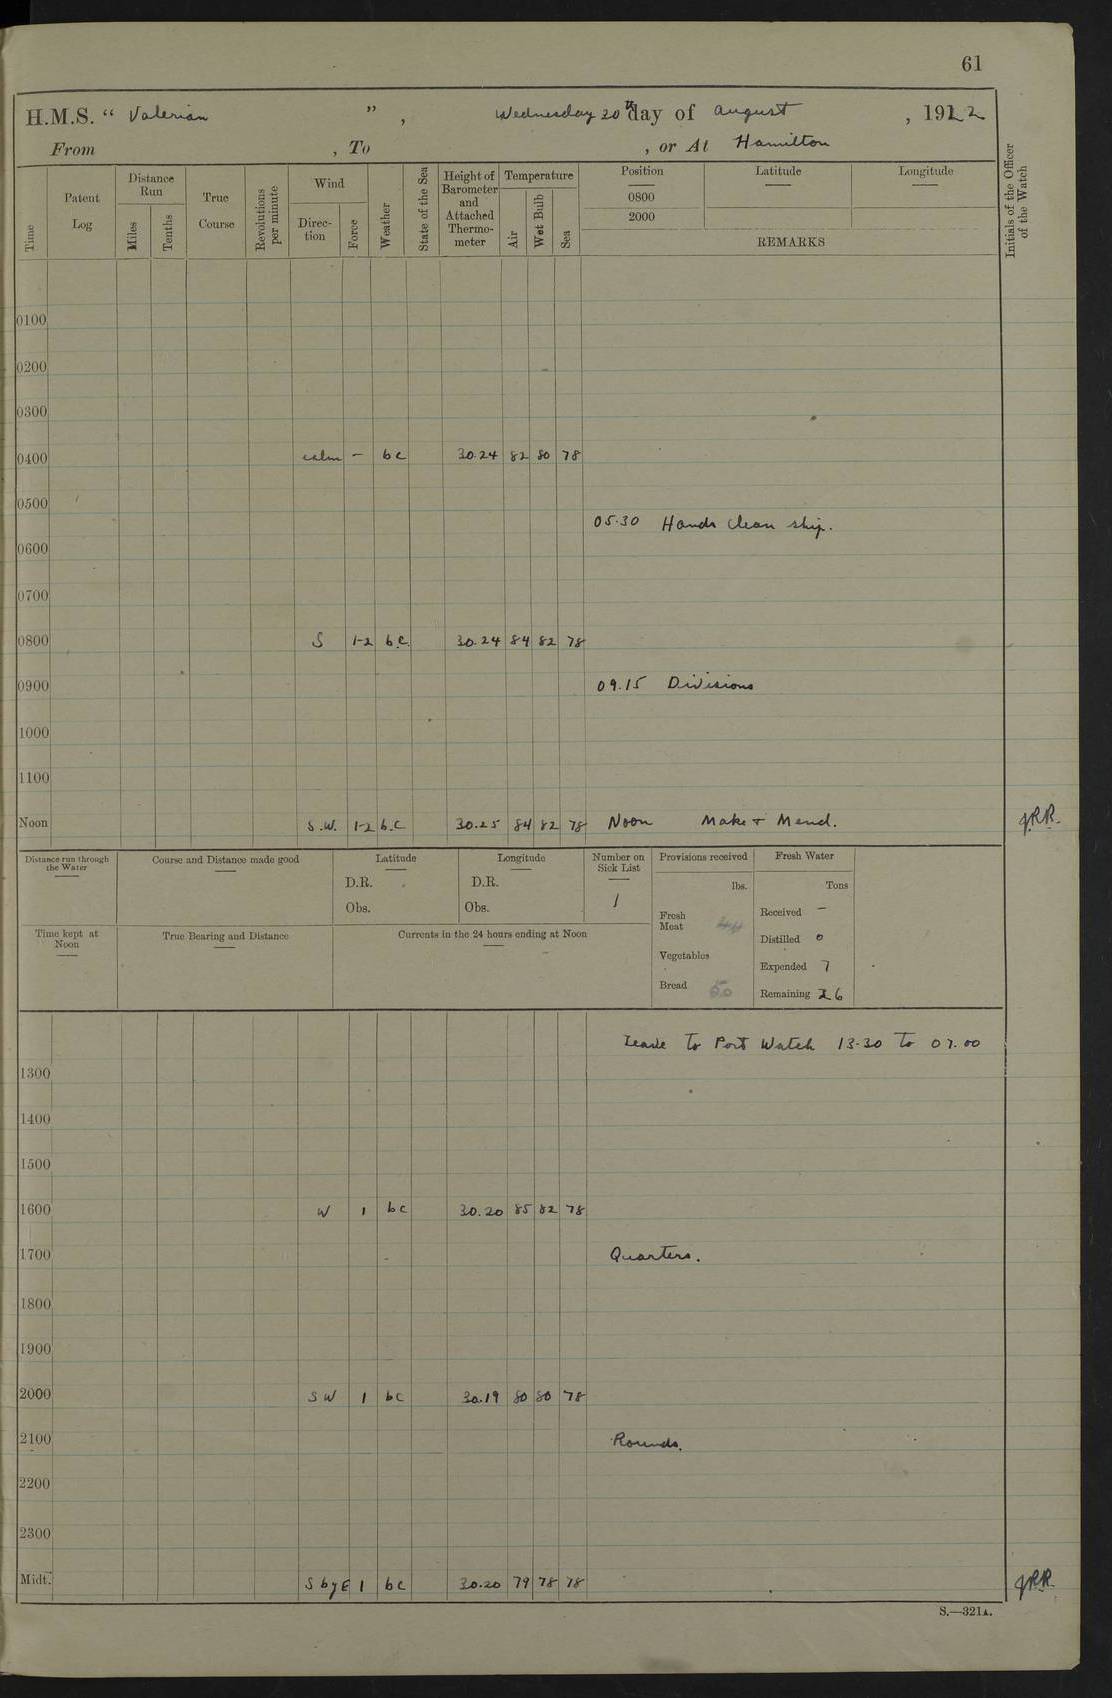 61
H.M.S. “ Valerian ” , Wednesday 20th day of August , 1922
From , To , or At Hamilton
Time
Patent Log
Distance Run
Miles
Tenths
True Course
Revolutions per minute
Wind
Direc-tion
Force
Weather
State of the Sea
Height of Barometer and Attached Thermo-meter
Temperature
Air
Wet Bulb
Sea
Position
0800
2000
Latitude
Longitude
REMARKS
Initials of the Officer of the Watch
0100
0200
0300
0400 calm – bc 30.24 82 80 78
0500
05.30 Hands clean ship.
0600
0700
0800 S 1-2 b.c. 30.24 84 82 78
0900 09.15 Divisions
1000
1100
Noon S.W. 1-2 b.c 30.25 84 82 78 Noon Make & Mend. J.R.R.
Distance run through the Water
Course and Distance made good
Latitude
D.R.
Obs.
Longitude
D.R.
Obs.
Number on Sick List
1
Provisions received
lbs.
Fresh Meat
Vegetables
Bread 50
Fresh Water
Tons
Received –
Distilled 0
Expended 7
Remaining 26
Time kept at Noon
True Bearing and Distance
Currents in the 24 hours ending at Noon
Leave to Port Watch 13.30 to 07.00
1300
1400
1500
1600 W 1 bc 30.20 85 82 78
1700 Quarters.
1800
1900
2000 SW 1 bc 30.19 80 80 78
2100 Rounds.
2200
2300
Midt. S by E 1 bc 30.20 79 78 78 J.R.R.
S.—321A.